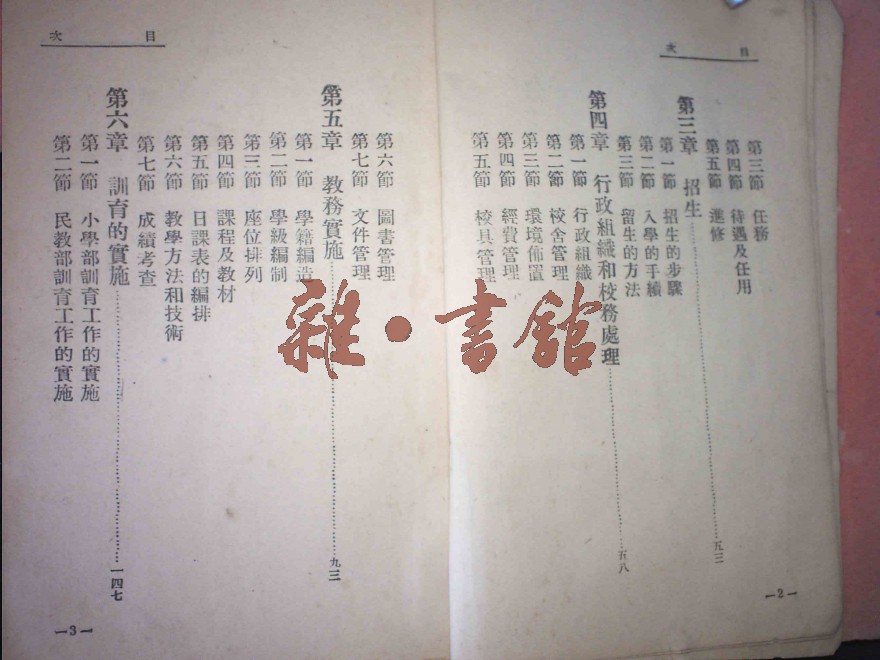 目次
第三節 任務
第四節 待遇及任用
第五節 進修
第三章 招生……五三
第一節 招生的步驟
第二節 入學的手續
第三節 留生的方法
第四章 行政組織和校務處理……五八
第一節 行政組織
第二節 校舍管理
第三節 環境佈置
第四節 經費管理
第五節 校具管理
—2—
目次
第六節 圖書管理
第七節 文件管理
第五章 教務實施……九三
第一節 學籍編造
第二節 學級編制
第三節 座位排列
第四節 課程及教材
第五節 日課表的編排
第六節 教學方法和技術
第七節 成績考查
第六章 訓育的實施……一四七
第一節 小學部訓育工作的實施
第二節 民教部訓育工作的實施
—3—
雜·書館